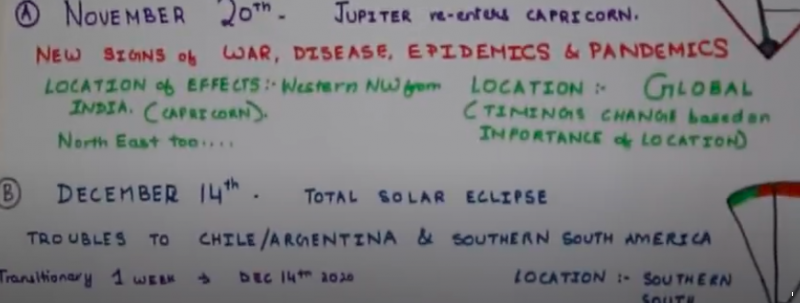 A NOVEMBER 20TH - JUPITER re-enters CAPRICORN.
NEW SIGNS of WAR, DISEASE, EPIDEMICS & PANDEMICS
LOCATION of EFFECTS:- Western NW from
INDIA. (CAPRICORN).
North East too....
LOCATION :- GLOBAL
(TIMINGS CHANGE based on
INPORTANCE of LOCATION)
B DECEMBER 14th. TOTAL SOLAR ECLIPSE
TROUBLES TO CHILE/ARGENTINA & SOUTHERN SOUTH AMERICA
Transitionary 1 WEEK → DEC 14TH 2020
LOCATION :- SOUTHERN
SOUTH